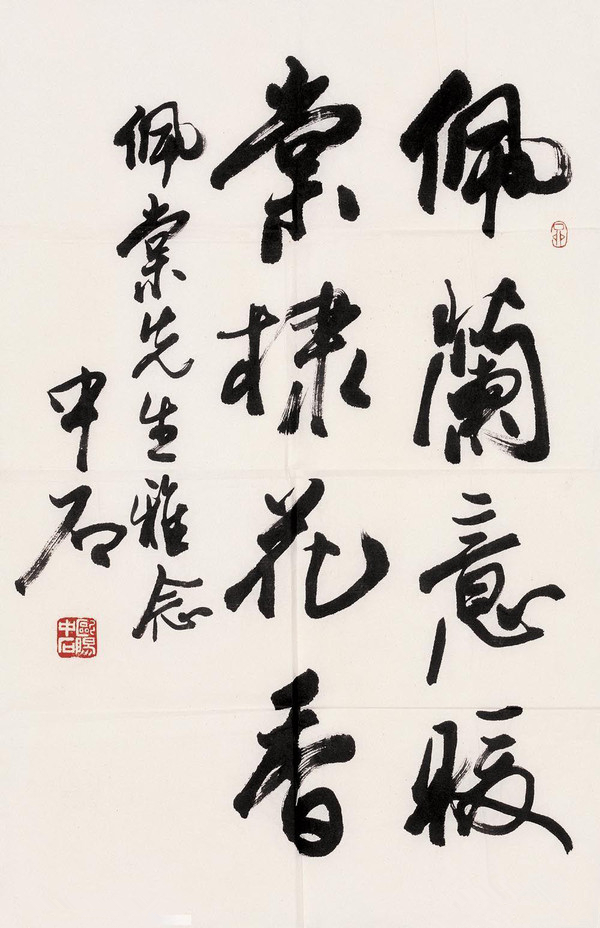 佩蘭意暖
棠棣花香
佩棠先生雅念
中石
歐陽中石